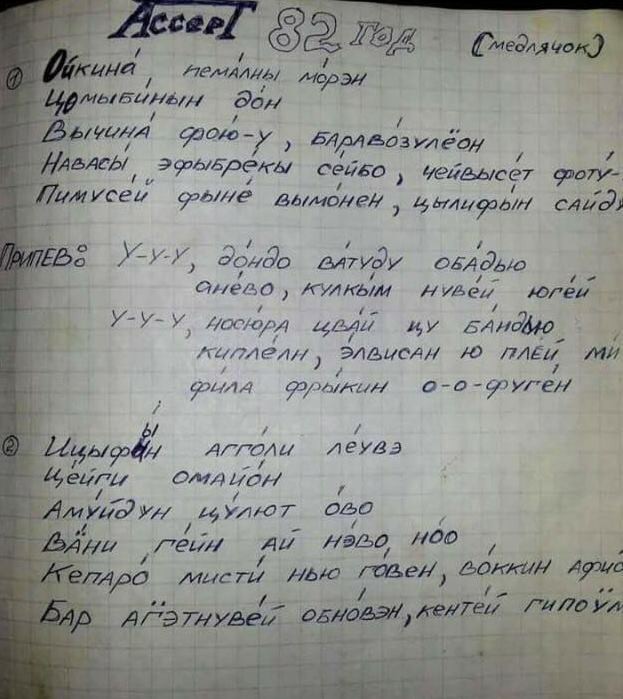 АссерТ 82 год (медлячок)
① Ойкина́, пема́лны мо́рэн
Цомыби́нын до́н
Вычина́ фою́-у, барaво́зулёон
Навасы́, эфыбре́кы се́йбо, чейвысе́т фоту́-
Пимусе́й фыне́ вымо́нен, цылифы́н сайду
Припев: У-у-у, до́ндо ва́туду оба́дью
ане́во, кулкы́м нуве́й юге́й
У-у-у, носю́ра цва́й цу ба́ндью
кипле́лн, э́лвисан ю пле́й ми
фи́ла фры́кин о-о-фуге́н
② Ицыфы́н агго́ли ле́увэ
Це́йги омайо́н
Аму́йдун цу́лют о́во
Ва́ни ге́йн ай нэ́во, но́о
Кепаро́ мисти́ нью го́вен, во́ккин афио
Бар агэтнуве́й обно́вэн, кенте́й гипоум